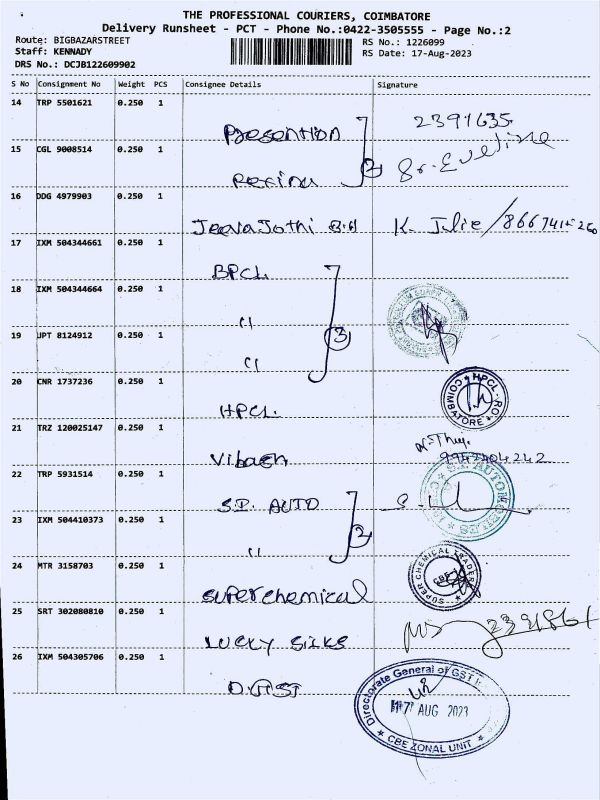 THE PROFESSIONAL COURIERS, COIMBATORE
Delivery Runsheet - PCT - Phone No.:0422-3505555 - Page No.:2
Route: BIGBAZARSTREET
RS No.: 1226099
Staff: KENNADY
RS Date: 17-Aug-2023
DRS No.: DCJB122609902
S No Consignment No Weight PCS Consignee Details Signature
14 TRP 5501621 0.250 1 2391635
Presention
15 CGL 9008514 0.250 1 Sr. Eveline
Rexina 2
16 DDG 4979903 0.250 1
JeevaJothi K. Julie/
17 IXM 504344661 0.250 1
BPCL
18 IXM 504344664 0.250 1
"
19 JPT 8124912 0.250 1 3
"
20 CNR 1737236 0.250 1 HPCL-RO COIMBATORE
HPCL
21 TRZ 120025147 0.250 1
Vibash
22 TRP 5931514 0.250 1 S.P. AUTOMOBILES
S.P. AUTO
23 IXM 504410373 0.250 1
" 2
24 MTR 3158703 0.250 1 SUPER CHEMICAL TRADERS CBE
superchemical
25 SRT 302080810 0.250 1
LUCKY SILKS
26 IXM 504305706 0.250 1 Directorate General of GST
D.GST
17 AUG 2023
CBE ZONAL UNIT